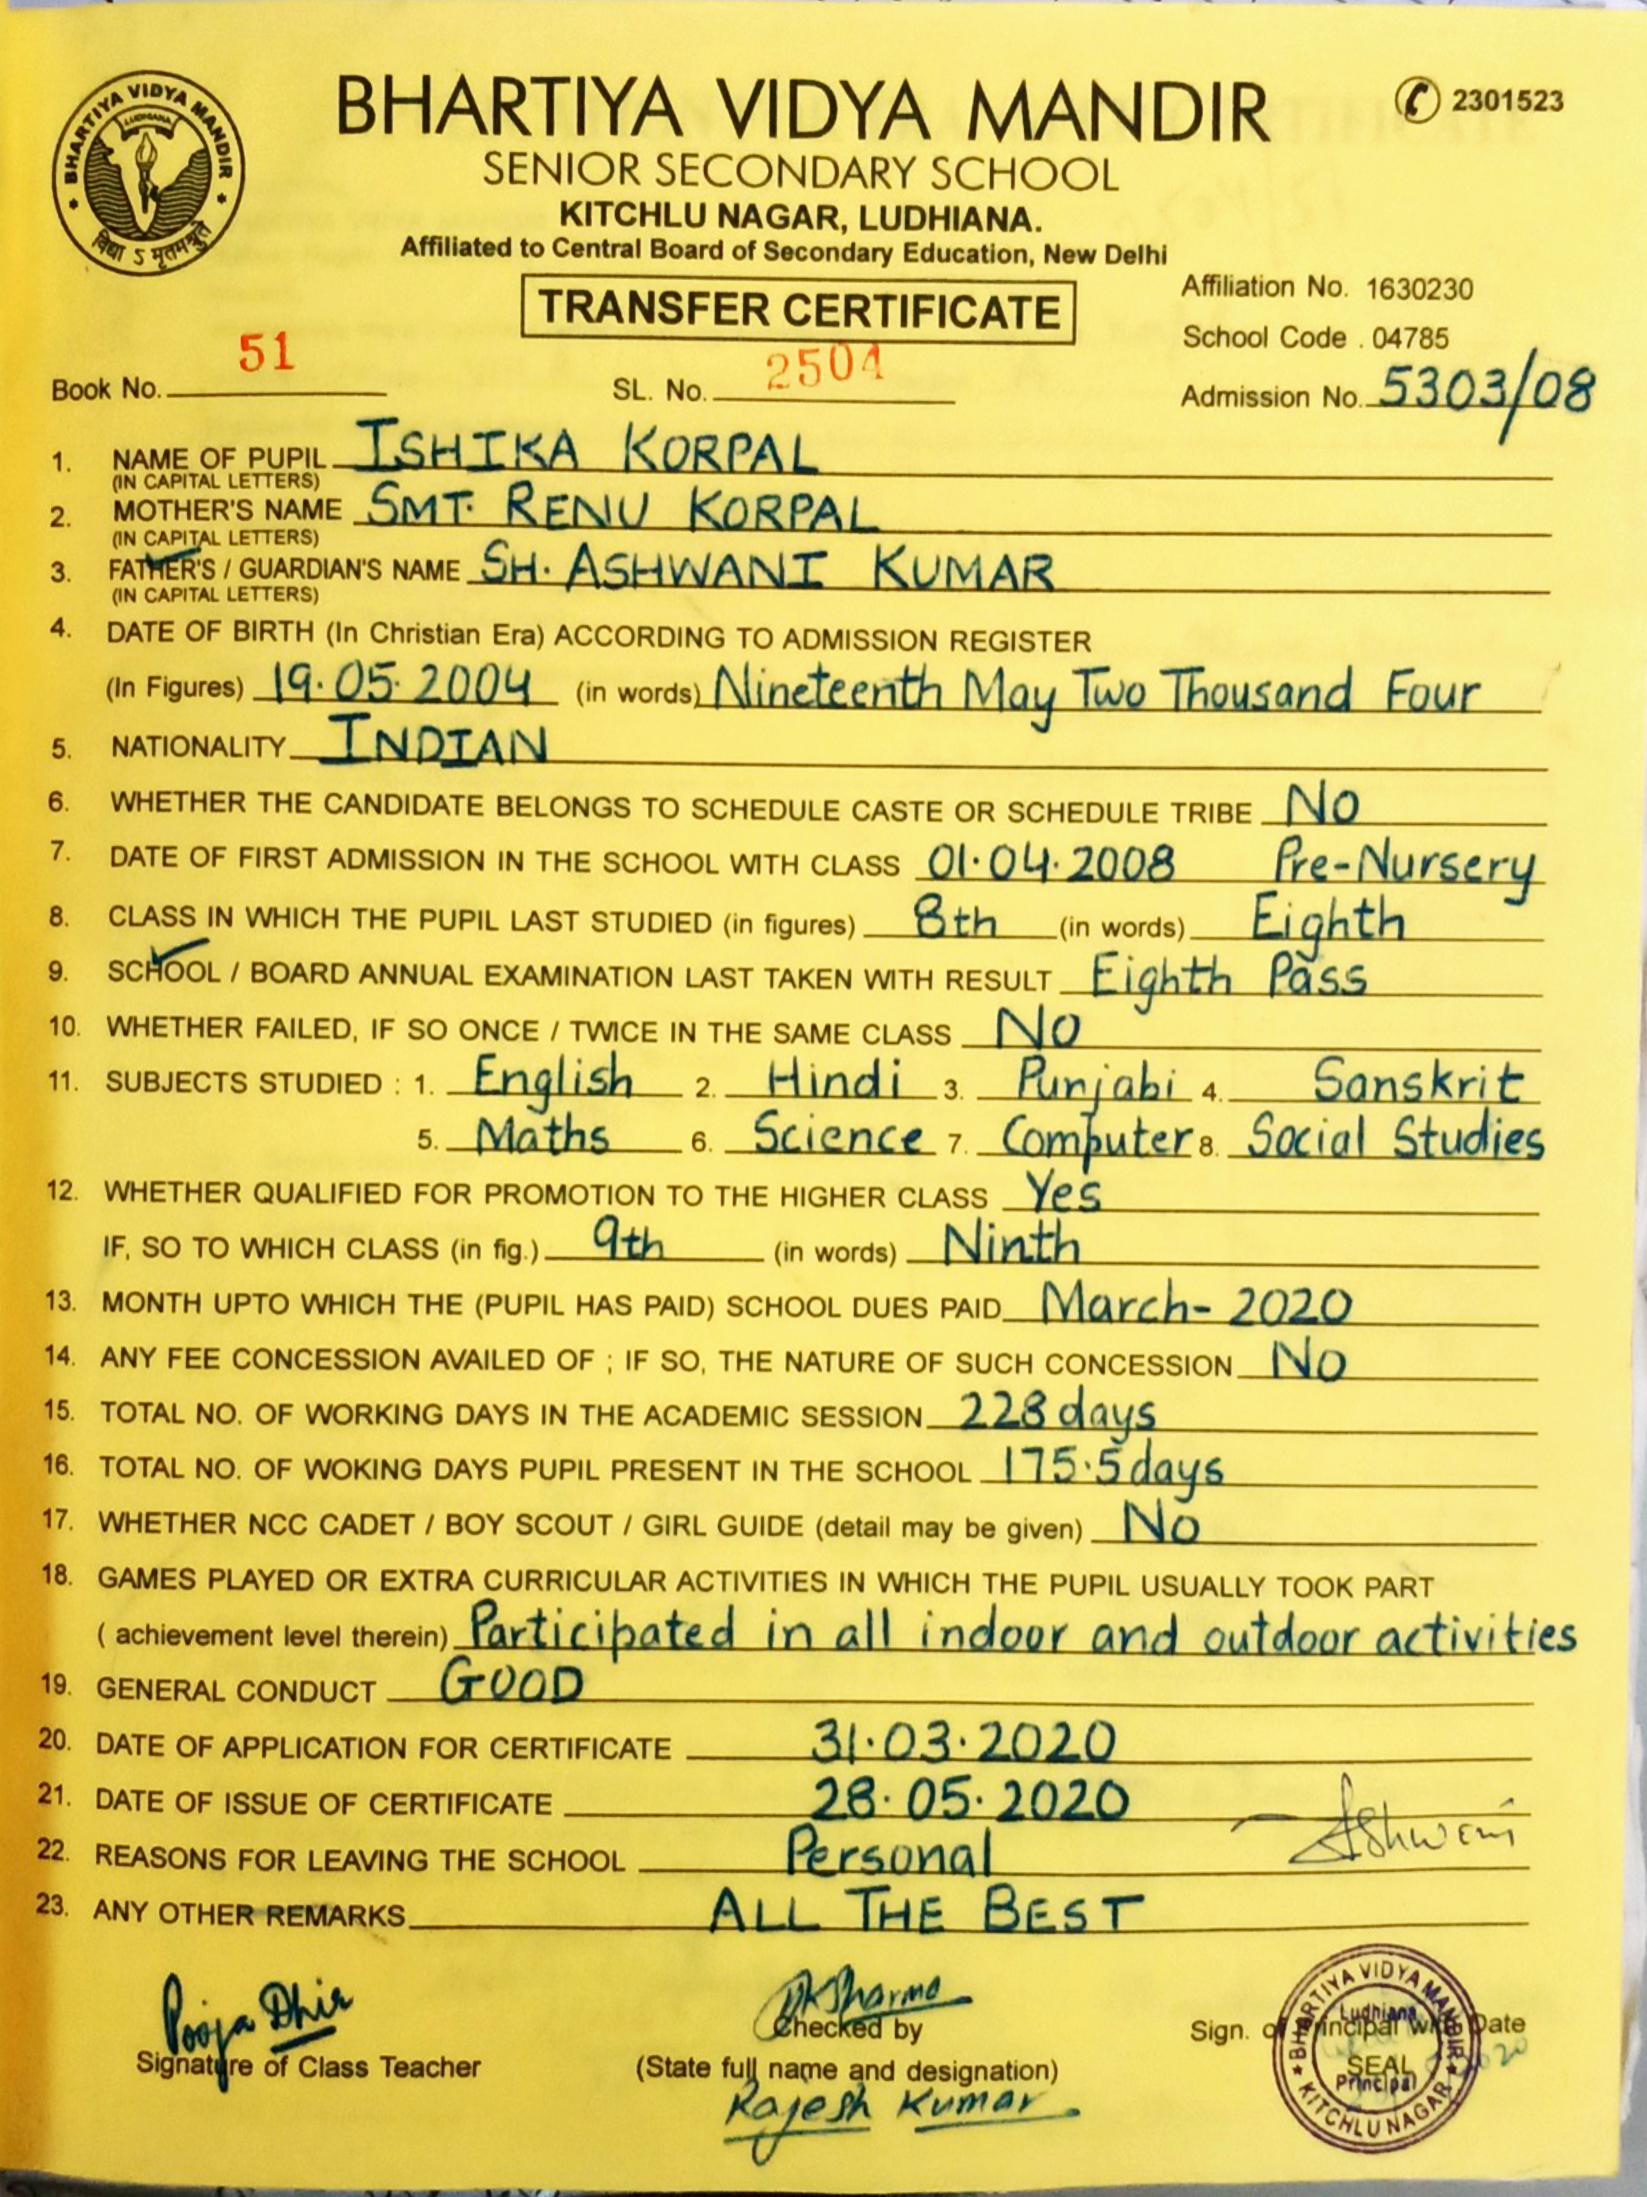 BHARTIYA VIDYA MANDIR
LUDHIANA
विद्या ऽ मृतमश्नुते
BHARTIYA VIDYA MANDIR
2301523
SENIOR SECONDARY SCHOOL
KITCHLU NAGAR, LUDHIANA.
Affiliated to Central Board of Secondary Education, New Delhi
TRANSFER CERTIFICATE
Affiliation No. 1630230
School Code . 04785
Book No. 51 SL. No. 2504 Admission No. 5303/08
1. NAME OF PUPIL ISHIKA KORPAL
(IN CAPITAL LETTERS)
2. MOTHER'S NAME SMT. RENU KORPAL
(IN CAPITAL LETTERS)
3. FATHER'S / GUARDIAN'S NAME SH. ASHWANI KUMAR
(IN CAPITAL LETTERS)
4. DATE OF BIRTH (In Christian Era) ACCORDING TO ADMISSION REGISTER
(In Figures) 19.05.2004 (in words) Nineteenth May Two Thousand Four
5. NATIONALITY INDIAN
6. WHETHER THE CANDIDATE BELONGS TO SCHEDULE CASTE OR SCHEDULE TRIBE No
7. DATE OF FIRST ADMISSION IN THE SCHOOL WITH CLASS 01.04.2008 Pre-Nursery
8. CLASS IN WHICH THE PUPIL LAST STUDIED (in figures) 8th (in words) Eighth
9. SCHOOL / BOARD ANNUAL EXAMINATION LAST TAKEN WITH RESULT Eighth Pass
10. WHETHER FAILED, IF SO ONCE / TWICE IN THE SAME CLASS No
11. SUBJECTS STUDIED : 1. English 2. Hindi 3. Punjabi 4. Sanskrit
5. Maths 6. Science 7. Computer 8. Social Studies
12. WHETHER QUALIFIED FOR PROMOTION TO THE HIGHER CLASS Yes
IF, SO TO WHICH CLASS (in fig.) 9th (in words) Ninth
13. MONTH UPTO WHICH THE (PUPIL HAS PAID) SCHOOL DUES PAID March- 2020
14. ANY FEE CONCESSION AVAILED OF ; IF SO, THE NATURE OF SUCH CONCESSION No
15. TOTAL NO. OF WORKING DAYS IN THE ACADEMIC SESSION 228 days
16. TOTAL NO. OF WOKING DAYS PUPIL PRESENT IN THE SCHOOL 175.5 days
17. WHETHER NCC CADET / BOY SCOUT / GIRL GUIDE (detail may be given) No
18. GAMES PLAYED OR EXTRA CURRICULAR ACTIVITIES IN WHICH THE PUPIL USUALLY TOOK PART
( achievement level therein) Participated in all indoor and outdoor activities
19. GENERAL CONDUCT GOOD
20. DATE OF APPLICATION FOR CERTIFICATE 31.03.2020
21. DATE OF ISSUE OF CERTIFICATE 28.05.2020
Ashwani
22. REASONS FOR LEAVING THE SCHOOL Personal
23. ANY OTHER REMARKS ALL THE BEST
Pooja Dhir
Signature of Class Teacher
Sharma
Checked by
(State full name and designation)
Rajesh Kumar
Sign. of Principal with Date
BHARTIYA VIDYA MANDIR
Ludhiana
SEAL
Principal
KITCHLU NAGAR